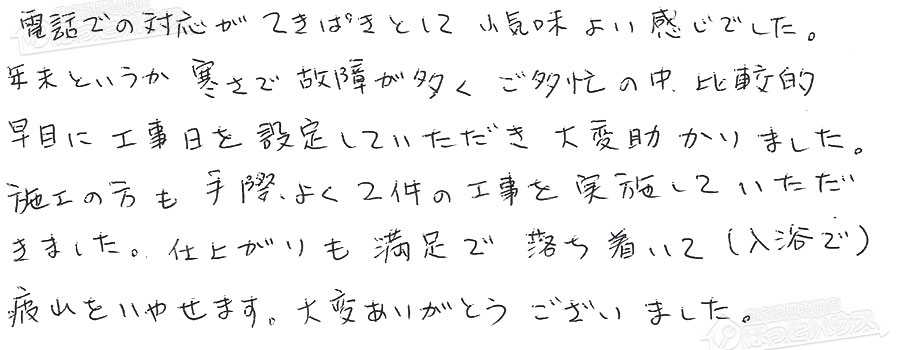 電話での対応がてきぱきとして小気味よい感じでした。
年末というか寒さで故障が多くご多忙の中、比較的
早目に工事日を設定していただき大変助かりました。
施工の方も手際よく2件の工事を実施していただ
きました。仕上がりも満足で落ち着いて(入浴で)
疲れをいやせます。大変ありがとうございました。
ほっとハウス